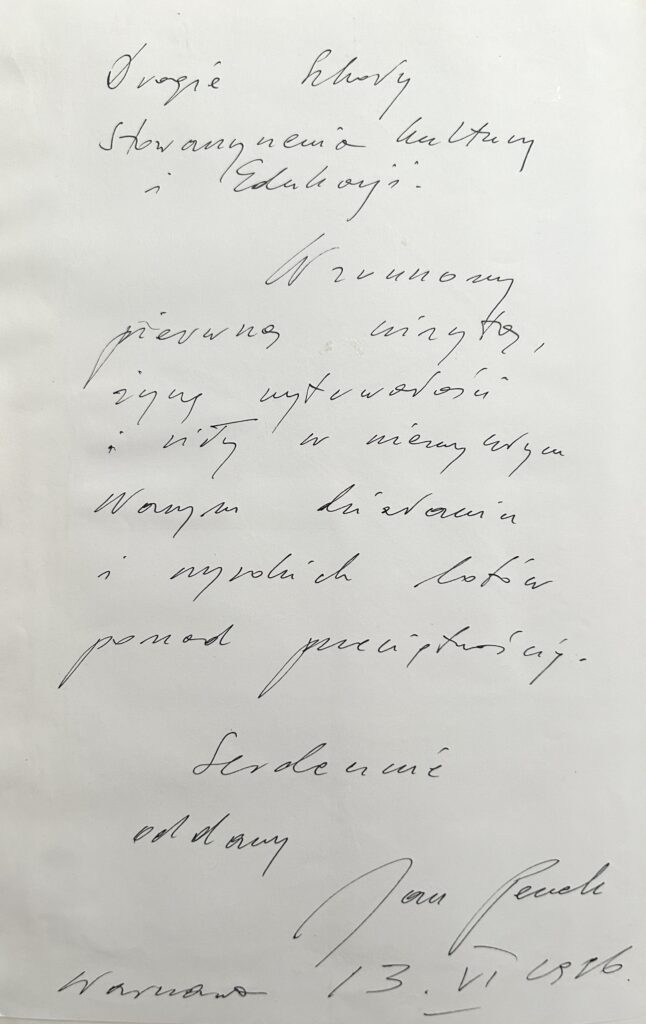 Drogie Szkoły
Stowarzyszenia Kultury
i Edukacji.
Wzruszony
pierwszą wizytą,
życzę wytrwałości
i siły w niezwykłym
Waszym działaniu
i wysokich lotów
ponad przeciętnością.
Serdecznie
oddany
Jan
Warszawa 13. VI